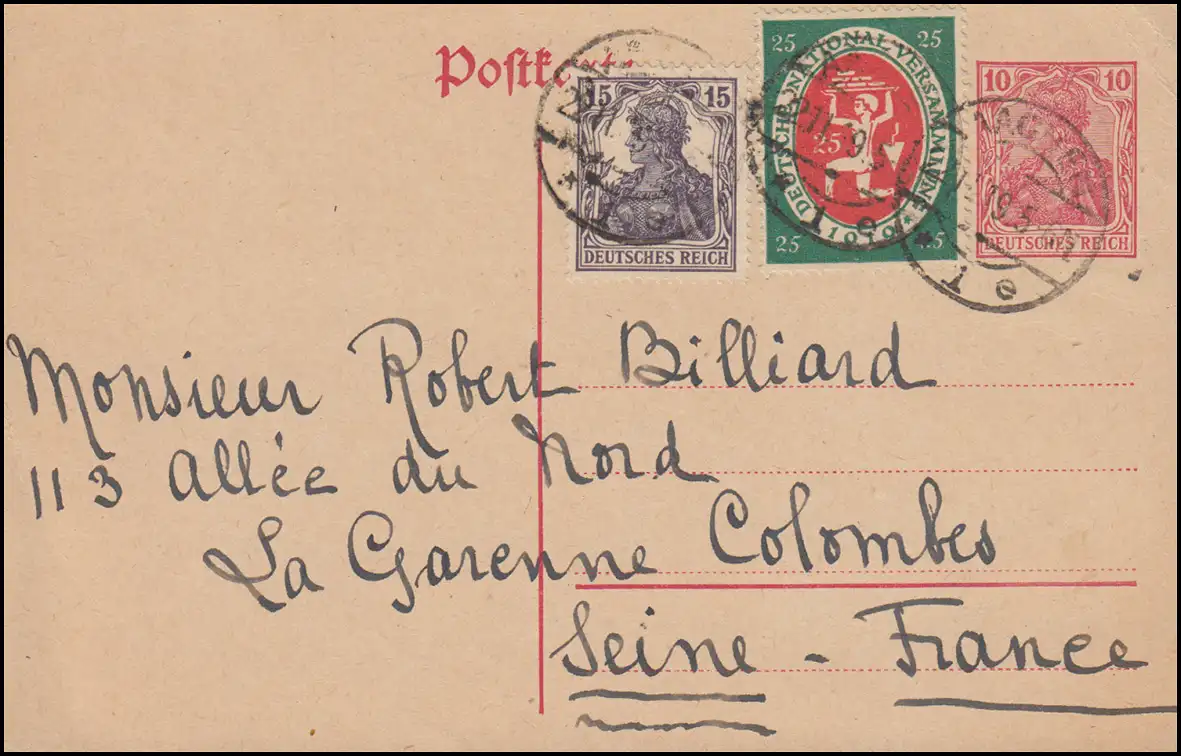 Postkarte
15 15
DEUTSCHES REICH
25 25
DEUTSCHE NATIONALVERSAMMLUNG
25
1919
25 25
10 10
DEUTSCHES REICH
Monsieur Robert Billiard
113 Allée du Nord
La Garenne Colombes
Seine - France